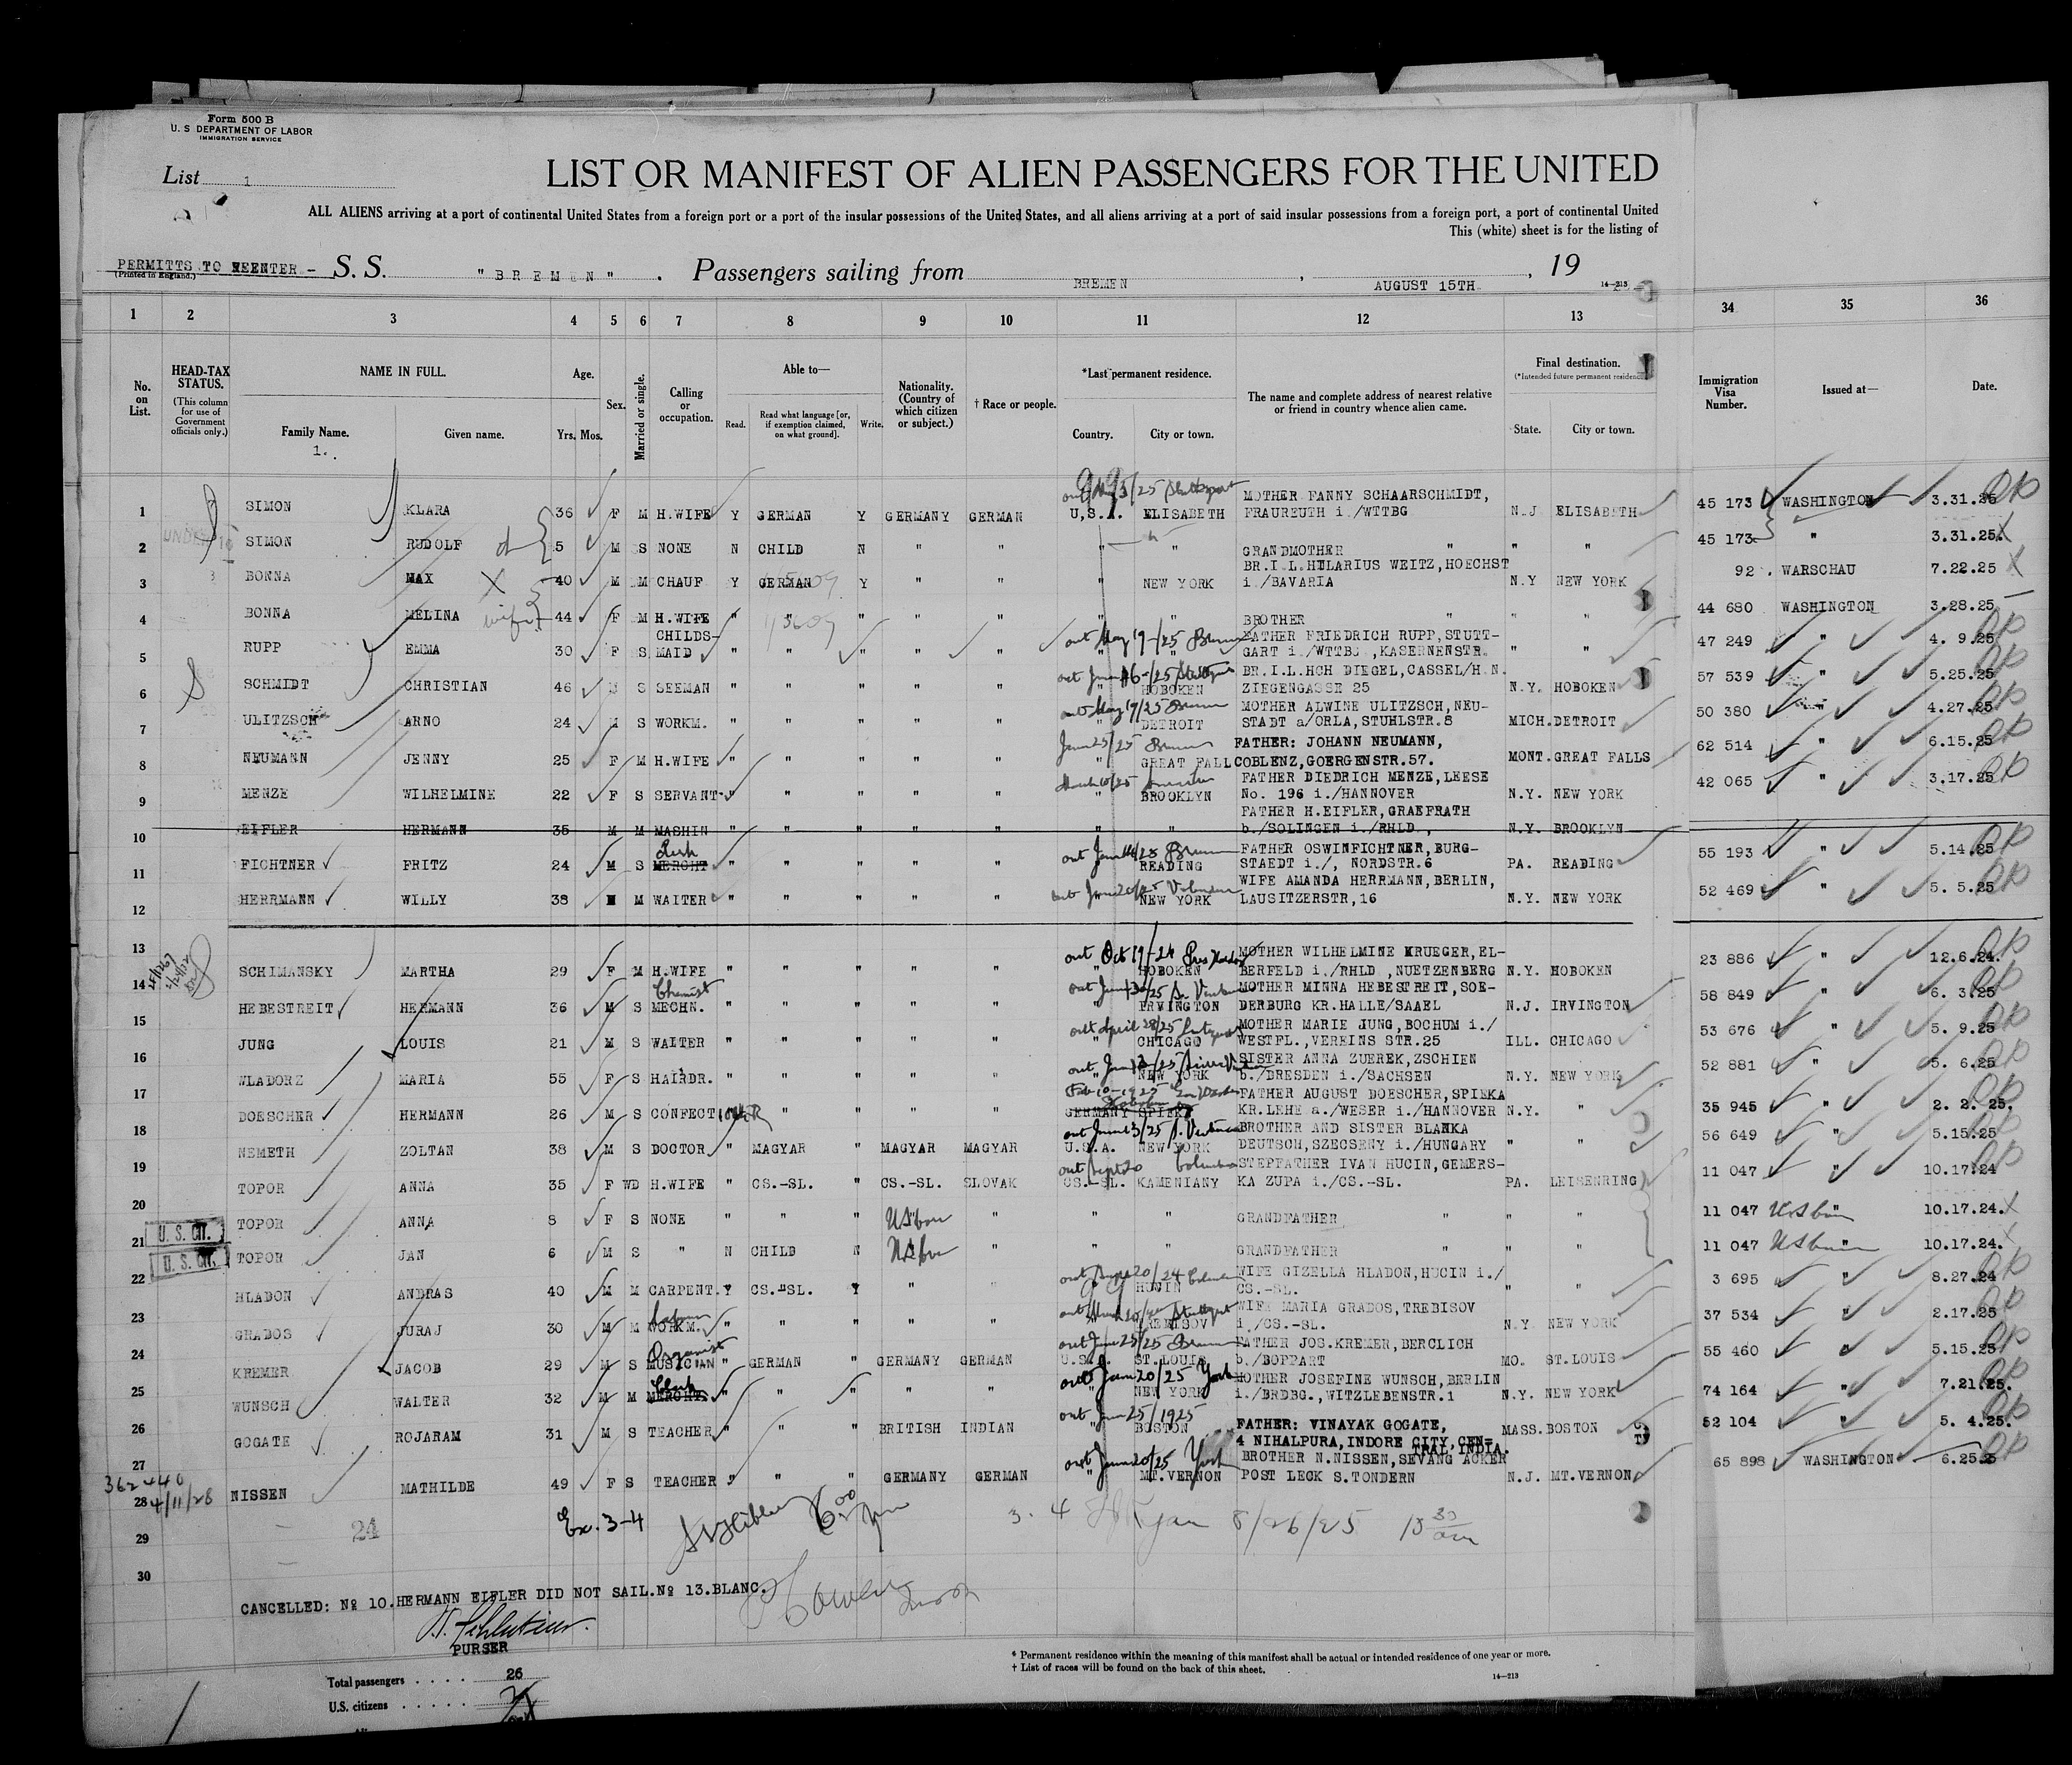 Form 500 B
U. S DEPARTMENT OF LABOR
IMMIGRATION SERVICE
List 1
LIST OR MANIFEST OF ALIEN PASSENGERS FOR THE UNITED
ALL ALIENS arriving at a port of continental United States from a foreign port or a port of the insular possessions of the United States, and all aliens arriving at a port of said insular possessions from a foreign port, a port of continental United
This (white) sheet is for the listing of
PERMITTS TO REENTER - S. S. "BREMEN". Passengers sailing from BREMEN, AUGUST 15TH, 19
(Printed in England.)
14-213
1 2 3 4 5 6 7 8 9 10 11 12 13 34 35 36
No. on List.
HEAD-TAX STATUS.
(This column for use of Government officials only.)
NAME IN FULL.
Family Name. Given name.
1.
Age.
Yrs. Mos.
Sex.
Married or single.
Calling or occupation.
Able to—
Read. Read what language [or, if exemption claimed, on what ground]. Write.
Nationality. (Country of which citizen or subject.)
† Race or people.
*Last permanent residence.
Country. City or town.
The name and complete address of nearest relative or friend in country whence alien came.
Final destination.
(*Intended future permanent residence)
State. City or town.
Immigration Visa Number.
Issued at—
Date.
out 25 Stuttgart MOTHER FANNY SCHAARSCHMIDT,
1 SIMON KLARA 36 F M H.WIFE Y GERMAN Y GERMANY GERMAN U.S.A. ELISABETH FRAUREUTH i./WTTBG N.J ELISABETH 45 173 WASHINGTON 3.31.25
2 SIMON RUDOLF 5 M S NONE N CHILD N " " " " GRANDMOTHER " " " 45 173 " 3.31.25
BR.I.L.HILARIUS WEITZ,HOECHST
3 BONNA MAX 40 M M CHAUF Y GERMAN Y " " " NEW YORK i./BAVARIA N.Y NEW YORK 92 . WARSCHAU 7.22.25
4 BONNA MELINA wife 44 F M H.WIFE " " " " " BROTHER " " " 44 680 WASHINGTON 3.28.25
CHILDS- out May 19-/25 Bremen FATHER FRIEDRICH RUPP,STUTT-
5 RUPP EMMA 30 F S MAID " " " " " " " GART i./WTTBG ,KASERNENSTR. " " 47 249 " 4. 9.25
BR.I.L.HCH DIEGEL,CASSEL/H.N.
6 SCHMIDT CHRISTIAN 46 M S SEEMAN " " " " " " HOBOKEN ZIEGENGASSE 25 N.Y. HOBOKEN 57 539 " 5.25.25
out May 19/25 Bremen MOTHER ALWINE ULITZSCH,NEU-
7 ULITZSCH ARNO 24 M S WORKM. " " " " " " DETROIT STADT a/ORLA,STUHLSTR.8 MICH. DETROIT 50 380 " 4.27.25
June 25/25 Bremen FATHER: JOHANN NEUMANN,
8 NEUMANN JENNY 25 F M H.WIFE " " " " " " GREAT FALL COBLENZ,GOERGENSTR.57. MONT. GREAT FALLS 62 514 " 6.15.25
March 10/25 FATHER DIEDRICH MENZE,LEESE
9 MENZE WILHELMINE 22 F S SERVANT " " " " " " BROOKLYN No. 196 i./HANNOVER N.Y. NEW YORK 42 065 " 3.17.25
FATHER H.EIFLER,GRAEFRATH
10 EIFLER HERMANN 35 M M MASHIN " " " " " " " b./SOLINGEN i./RHLD., N.Y. BROOKLYN
FATHER OSWINFICHTNER,BURG-
11 FICHTNER FRITZ 24 M S MERCHT " " " " " READING STAEDT i./, NORDSTR.6 PA. READING 55 193 " 5.14.25
WIFE AMANDA HERRMANN,BERLIN,
12 HERRMANN WILLY 38 M M WAITER " " " " " NEW YORK LAUSITZERSTR,16 N.Y. NEW YORK 52 469 " 5. 5.25
13
out Oct 19-24 Pres Harding MOTHER WILHELMINE KRUEGER,EL-
14 SCHIMANSKY MARTHA 29 F M H.WIFE " " " " " " HOBOKEN BERFELD i./RHLD ,NUETZENBERG N.Y. HOBOKEN 23 886 " 12.6.24.
Chemist MOTHER MINNA HEBESTREIT,SOE-
15 HEBESTREIT HERMANN 36 M S MECHN. " " " " " " IRVINGTON DERBURG KR.HALLE/SAAEL N.J. IRVINGTON 58 849 " 6. 3.25
out April 28/25 MOTHER MARIE JUNG,BOCHUM i./
16 JUNG LOUIS 21 M S WAITER " " " " " " CHICAGO WESTFL.,VEREINS STR.25 ILL. CHICAGO 53 676 " 5. 9.25
SISTER ANNA ZUEREK,ZSCHIEN
17 WLADORZ MARIA 55 F S HAIRDR. " " " " " " NEW YORK b./DRESDEN i./SACHSEN N.Y. NEW YORK 52 881 " 5. 6.25
FATHER AUGUST DOESCHER,SPIEKA
18 DOESCHER HERMANN 26 M S CONFECTIONER " " " " GERMANY SPIEKA KR.LEHE a./WESER i./HANNOVER N.Y. " 35 945 " 2. 2. 25.
BROTHER AND SISTER BLANKA
19 NEMETH ZOLTAN 38 M S DOCTOR " MAGYAR " MAGYAR MAGYAR U.S.A. NEW YORK DEUTSCH,SZECSENY i./HUNGARY " " 56 649 " 5.15.25
out Sept 20 Columbus STEPFATHER IVAN HUCIN,GEMERS-
20 TOPOR ANNA 35 F WD H.WIFE " CS.-SL. " CS.-SL. SLOVAK CS.-SL. KAMENIANY KA ZUPA i./CS.-SL. PA. LEISENRING 11 047 " 10.17.24
21 U. S. CIT. TOPOR ANNA 8 F S NONE " " " US born " " " GRANDFATHER " " " 11 047 US born 10.17.24.
U. S. CIT. TOPOR JAN 6 M S " N CHILD N US born " " " GRANDFATHER " " " 11 047 US born 10.17.24.
WIFE GIZELLA HLADON,HUCIN i./
22 HLADON ANDRAS 40 M M CARPENT. Y CS.-SL. Y " " " HUCIN CS.-SL. " " 3 695 " 8.27.24
WIFE MARIA GRADOS,TREBISOV
23 GRADOS JURAJ 30 M M WORKM. " " " " " " TREBISOV i./CS.-SL. N.Y. NEW YORK 37 534 " 2.17.25
Organist out June 25/25 Bremen FATHER JOS.KREMER,BERCLICH
24 KREMER JACOB 29 M S MUSICIAN " GERMAN " GERMANY GERMAN U.S.A. ST.LOUIS b./BOPPART MO. ST.LOUIS 55 460 " 5.15.25
Clerk out June 20/25 York MOTHER JOSEFINE WUNSCH,BERLIN
25 WUNSCH WALTER 32 M M MERCHT. " " " " " " NEW YORK i./BRDBG.,WITZLEBENSTR.1 N.Y. NEW YORK 74 164 " 7.21.25.
out June 25/1925 FATHER: VINAYAK GOGATE,
26 GOGATE ROJARAM 31 M S TEACHER " " " BRITISH INDIAN " BOSTON 4 NIHALPURA,INDORE CITY,CEN-TRAL INDIA. MASS. BOSTON 52 104 " 5. 4.25.
27 out June 20/25 York BROTHER N.NISSEN,SEVANG ACKER
28 NISSEN MATHILDE 49 F S TEACHER " " " GERMANY GERMAN " MT.VERNON POST LECK S.TONDERN N.J. MT.VERNON 65 898 WASHINGTON 6.25.25
362440
4/11/28
29 24 Ex. 3-4 3. 4 8/26/25 10 30 am
30
CANCELLED: № 10.HERMANN EIFLER DID NOT SAIL.№ 13.BLANC.
PURSER
Total passengers . . . . 26
U.S. citizens . . . . . .
* Permanent residence within the meaning of this manifest shall be actual or intended residence of one year or more.
† List of races will be found on the back of this sheet.
14-213